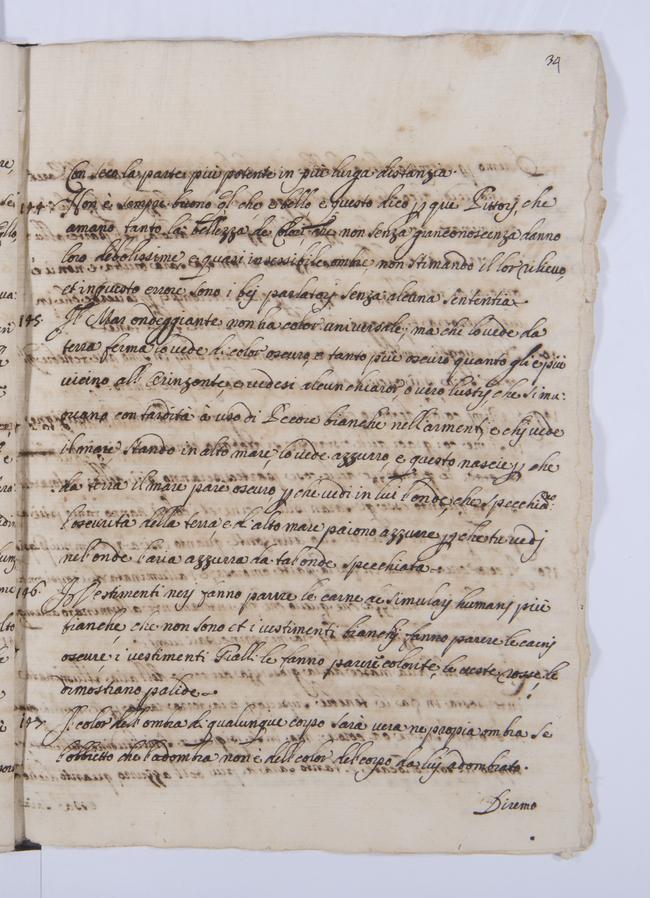 34
Con seco la parte più potente in più lunga distanzia.
144. Non è sempre buono ql che è bello e questo dico p que Pittorj, che
amano tanto la bellezza de Colorj, che non senza gran conoscenza danno
loro debolissime e quasi insensibile ombre non stimando il lor rilievo,
et in questo errore sono i bej parlatorj senza alcuna sententia
145. Il Mar ondeggiante non ha color universale, ma che lo vede da
terra ferma lo vede di color oscuro, e tanto più oscuro quanto gli è più
vicino all' Orinzonte, e vedesi alcun chiaror overo lustrj che si mu:
ovano con tardità à uso di Pecore bianche nell'armenti e chj vede
il mare stando in alto mare, lo vede azzurro, e questo nascie p che
da terra il mare pare oscuro p che vedi in lui l'onde che specchia:
l'oscurità della terra, e d'alto mare paiono azzurre p che tu vedj
nel'onde l'aria azzurra da tal onde specchiata.
146. I Vestimenti nerj fanno parere le carne de simulacrj humanj più
bianche, che non sono et i vestimenti bianchj fanno parere le carnj
oscure, i vestimenti Gialli le fanno parere colorite, le veste rosse le
dimostrano palide.
147. Il color del'ombra di qualunque corpo sarà vera ne propia ombra se
l'obbietto che l'adombra non è dell color del corpo da luj adombrato.
Diremo